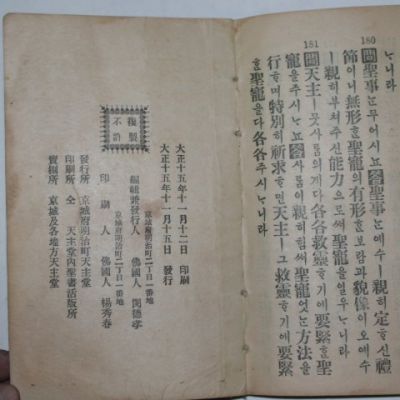 180
ᄂᆞ니라
問聖事ᄂᆞᆫ무어시뇨答聖事ᄂᆞᆫ예수ㅣ親히定ᄒᆞ신禮
節이니無形ᄒᆞᆫ聖寵의有形ᄒᆞᆫ보람과貌像이오예수
ㅣ親히부쳐주신能力으로써聖寵을일우ᄂᆞ니라
181
問天主ㅣ뭇사ᄅᆞᆷ의게다各各救靈ᄒᆞ기에要緊ᄒᆞᆫ聖
寵을주시ᄂᆞ뇨答사ᄅᆞᆷ이親히힘써聖寵엇ᄂᆞᆫ方法을
行ᄒᆞ며特別히祈求ᄒᆞ면天主ㅣ그救靈ᄒᆞ기에要緊
ᄒᆞᆫ聖寵을다各各주시ᄂᆞ니라
複製
不許
大正十五年十一月十二日 印刷
大正十五年十一月十五日 發行
京城府明治町二丁目一番地
編輯兼發行人 佛國人 閔德孝
京城府明治町二丁目一番地
印刷人 佛國人 楊秀春
發行所 京城府明治町天主堂
印刷所 仝 天主堂內聖書活版所
賣捌所 京城及各地方天主堂